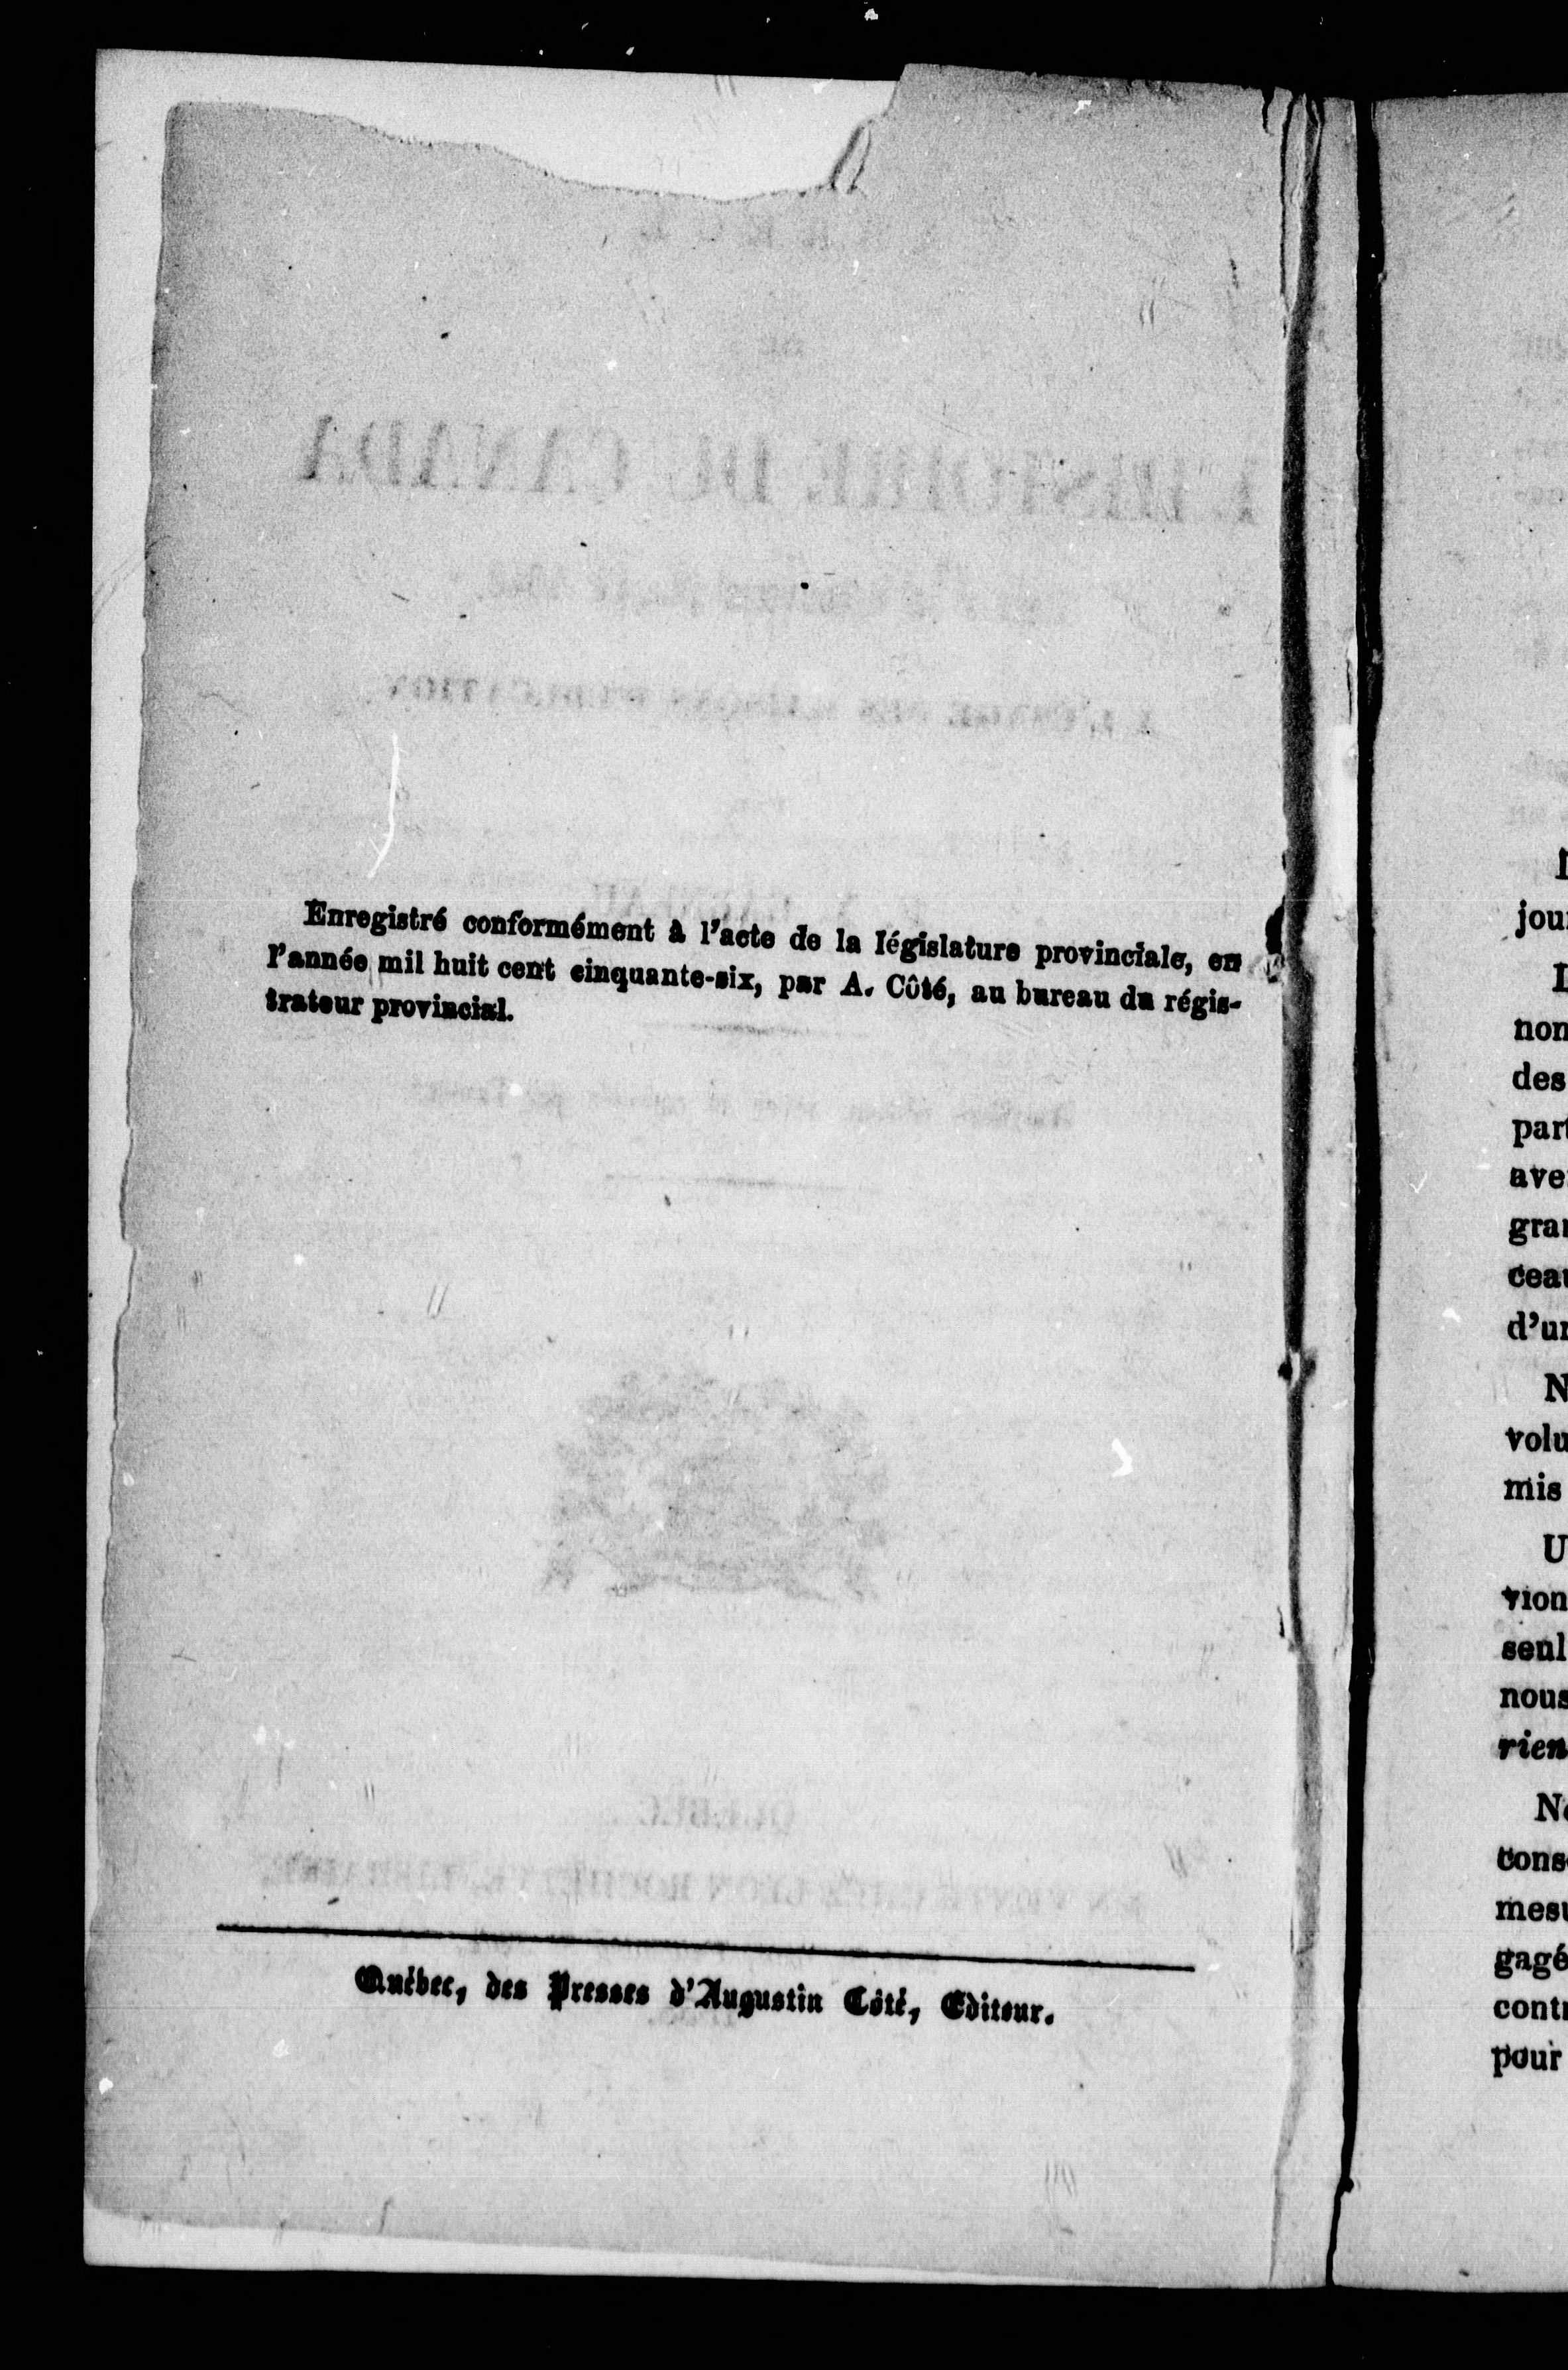 Enregistré conformément à l'acte de la législature provinciale, en
l'année mil huit cent cinquante-six, par A. Côté, au bureau du régis-
trateur provincial.
Québec, des Presses d'Augustin Côté, Editeur.
jou
non
des
par
ave
gra
cea
d'u
N
volu
mis
U
vion
seul
nous
rien
N
cons
mes
gagé
cont
pour